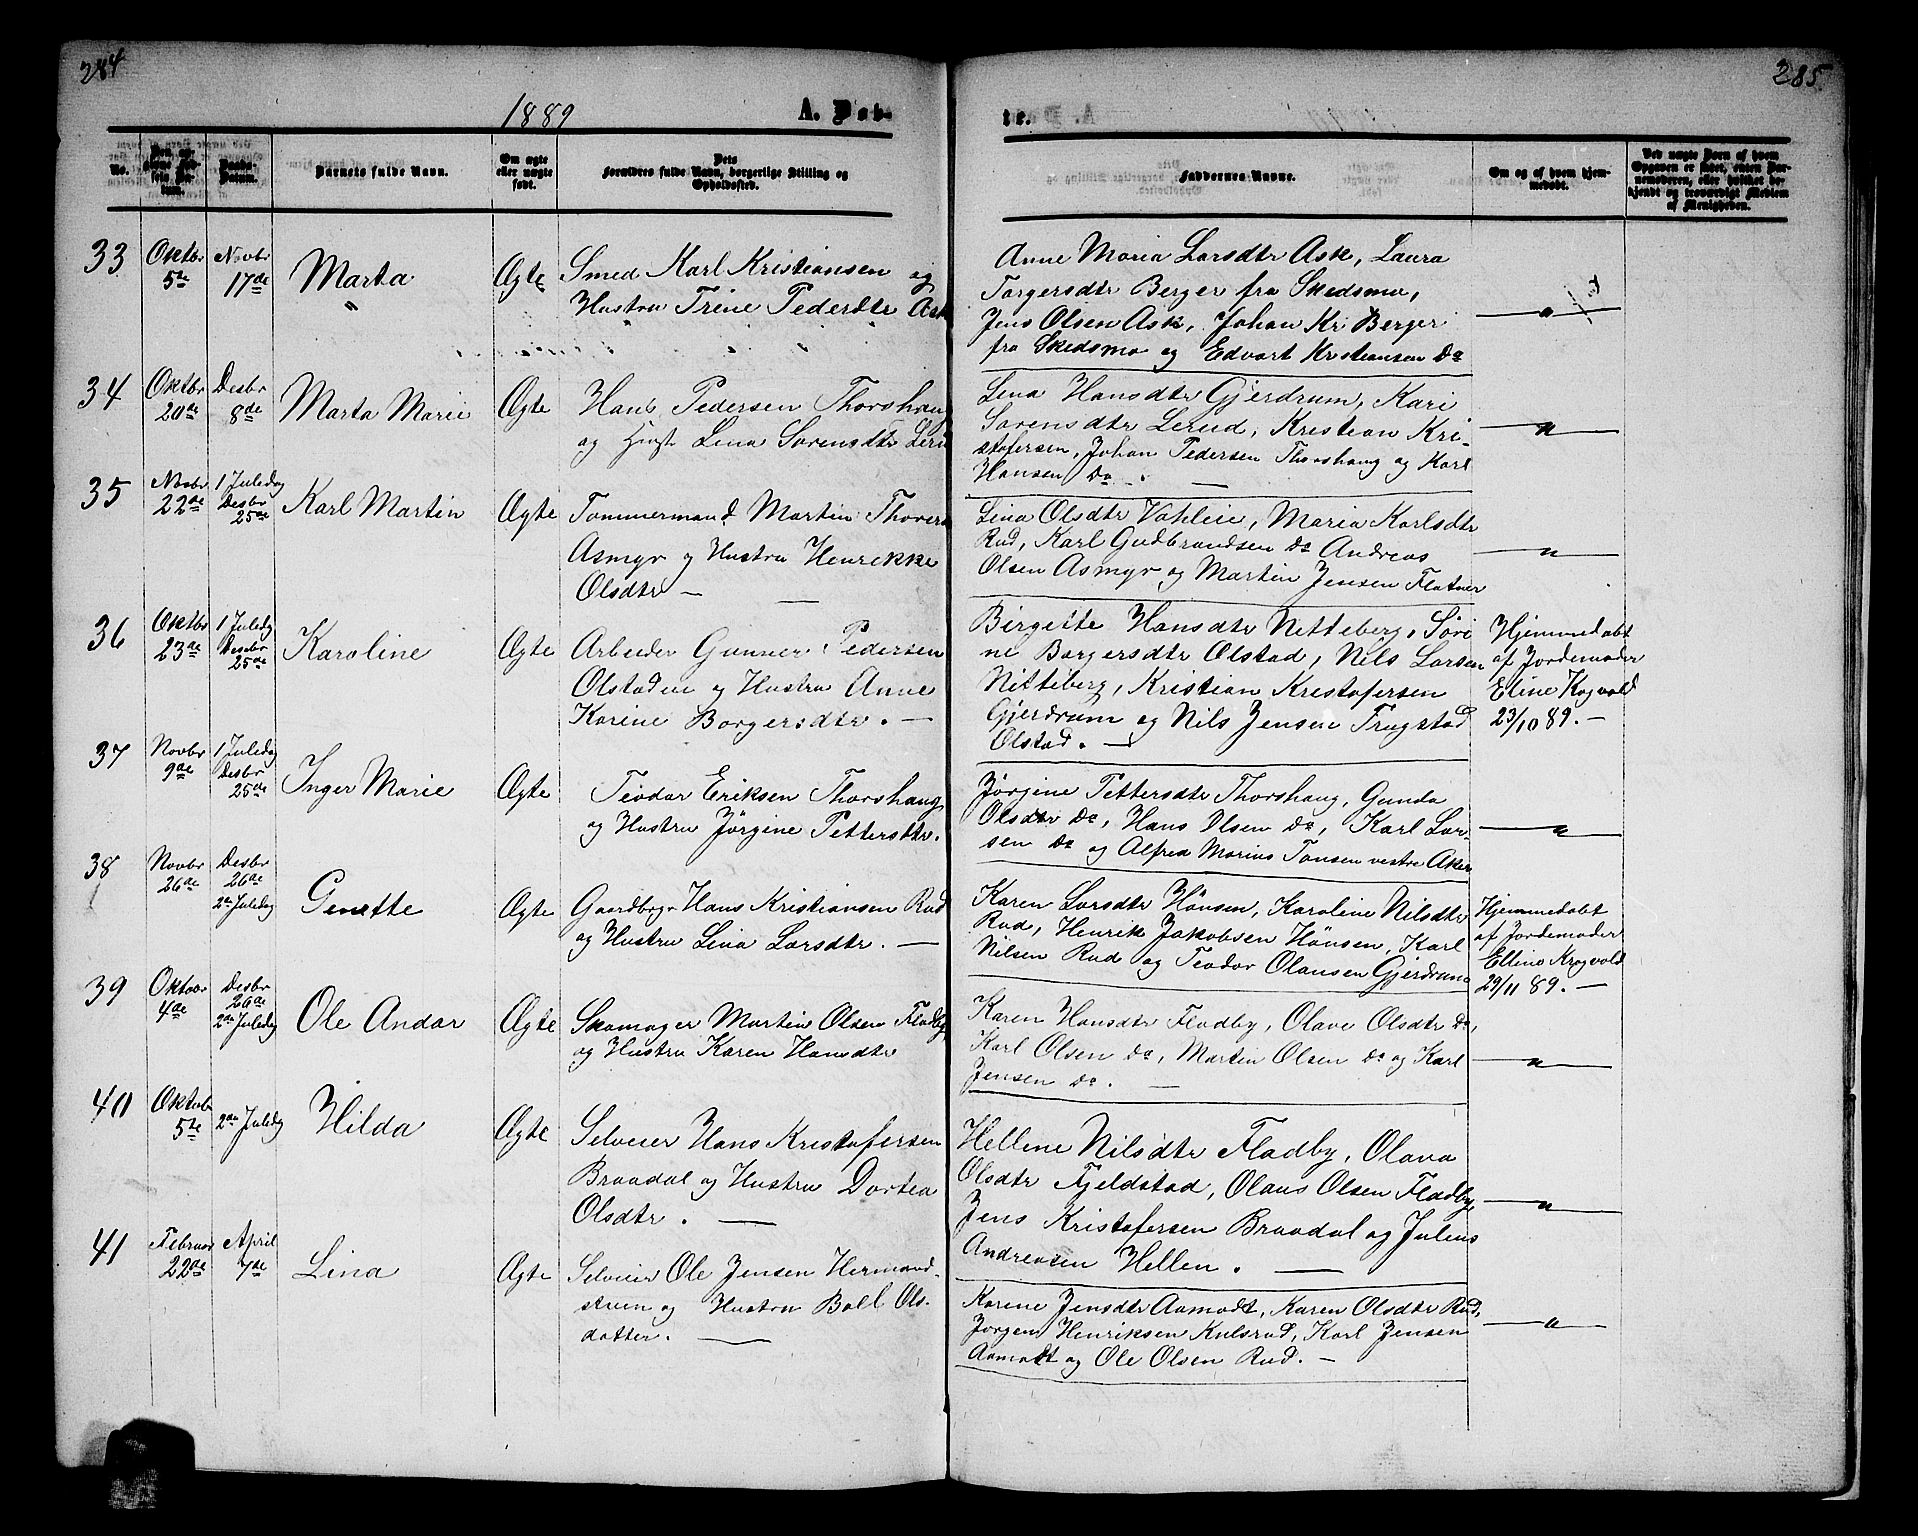 284
285
1889
A. Døb-
te.
No.
Barnets fulde Navn.
Om ægte eller uægte født.
Dets Forældres fulde Navn, borgerlige Stilling og Opholdssted.
Faddernes Navne.
Om og af hvem hjemmedøbt.
33 Oktbr 5te Novbr 17de Marta Ægte Smed Karl Kristiansen og
Hustru Trine Pedersdtr Ask
Anne Maria Larsdtr Ask, Laura
Torgersdtr Berger fra Skedsmo,
Jens Olsen Ask, Johan Kr Berger
fra Skedsmo og Edvart Kristiansen Do
34 Oktbr 20de Desbr 8de Marta Marie Ægte Hans Pedersen Thorshaug
og Hust Lina Sorensdtr
Lena Hansdtr Gjerdrum, Kari
Sorensdtr Lerud, Kristian Kri-
stofersen, Johan Pedersen Thorshaug og Karl
Hansen Do.
35 Novbr 22de 1 Juledag Desbr 25de Karl Martin Ægte Tømmermand Martin
Asmyr og Hustru Henrikke
Olsdtr —
Lina Olsdtr Vahleie, Maria Karlsdtr
Rud, Karl Gudbrandsen Do Andreas
Olsen Asmyr og Martin Jensen Flatner
36 Oktbr 23de 1 Juledg Desbr 25de Karoline Ægte Arbeider Gunner Pedersen
Olstadeie og Hustru Anne
Karine Borgersdtr. —
Birgette Hansdtr Nitteberg, Søri
ne Borgersdtr Olstad, Nils Larsen
Nitteberg, Kristian Kristofersen
Gjerdrum og Nils Jensen Trugstad
Olstad. —
Hjemmedøbt
af Jordemoder
Eline Kogvold
23/10 89. —
37 Novbr 9de 1 Juledag Desbr 25de Inger Marie Ægte Teodor Eriksen Thorshaug
og Hustru Jørgine Pettersdtr.
Jørgine Pettersdtr Thorshaug, Gunda
Olsdtr Do, Hans Olsen Do, Karl Lar-
sen Do og Alfred Marius Tonsen vestre Aker
38 Novbr 26de Desbr 26de 2de Juledag Genette Ægte Gaardbrgr Hans Kristiansen Rud
og Hustru Lina Larsdtr. —
Karen Larsdtr Hönsen, Karoline Nilsdtr
Rud, Henrik Jakobsen Hönsen, Karl
Nilsen Rud og Teodor Olausen Gjerdrum
Hjemmedøbt
af Jordemoder
Elline Krogvold
29/11 89. —
39 Oktobr 4de Desbr 26de 2de Juledg Ole Andor Ægte Skomager Martin Olsen Fladby
og Hustru Karen Hansdtr
Karen Hansdtr Fladby, Olave Olsdtr Do,
Karl Olsen Do, Martin Olsen Do og Karl
Jensen Do. —
40 Oktobr 5te 2den Juledg Hilda Ægte Selveier Hans Kristofersen
Braadal og Hustru Dortea
Olsdtr. —
Hellene Nilsdtr Fladby, Olava
Olsdtr Fjeldstad, Olaus Olsen Fladby,
Jens Kristofersen Braadal og Julius
Andreasen Hellen. —
41 Februar 22de April 7de Lina Ægte Selveier Ole Jensen Hermand-
stuen og Hustru Boll Ols-
datter. —
Karene Jensdtr Aamodt, Karen Olsdtr Rud,
Jørgen Henriksen Kulsrud, Karl Jensen
Aamodt og Ole Olsen Rud. —